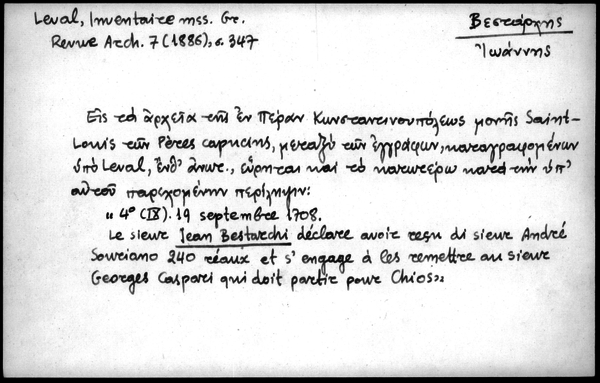 Leval, Inventaire mss. Gr.
Revue Arch. 7 (1886), σ. 347
Βεστάρχης
Ἰωάννης
Εἰς τὰ ἀρχεῖα τῆς ἐν Πέραν Κωνσταντινουπόλεως μονῆς Saint-
Louis τῶν Pères capucins, μεταξὺ τῶν ἐγγράφων, καταγραφομένων
ὑπὸ Leval, ἔνθ' ἀνωτ., εὕρηται καὶ τὸ κατωτέρω κατὰ τὴν ὑπ'
αὐτοῦ παρεχομένην περίληψιν:
" 4° (IX). 19 septembre 1708.
Le sieur Jean Bestarchi déclare avoir reçu di sieur André
Souriano 240 réaux et s'engage à les remettre au sieur
Georges Caspari qui doit partir pour Chios»